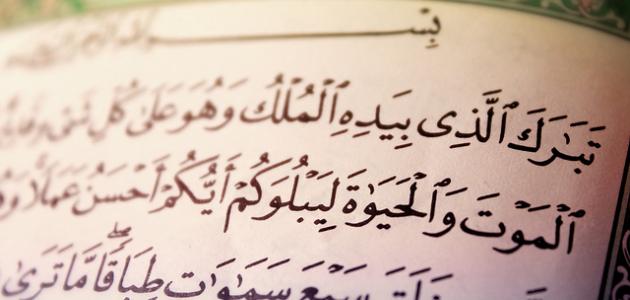 بِسْـــــــــــــمِ
تَبَٰرَكَ ٱلَّذِى بِيَدِهِ ٱلْمُلْكُ وَهُوَ عَلَىٰ كُلِّ شَىْءٍ
ٱلْمَوْتَ وَٱلْحَيَوٰةَ لِيَبْلُوَكُمْ أَيُّكُمْ أَحْسَنُ عَمَلًا
سَبْعَ سَمَٰوَٰتٍ طِبَاقًا مَّا تَرَىٰ